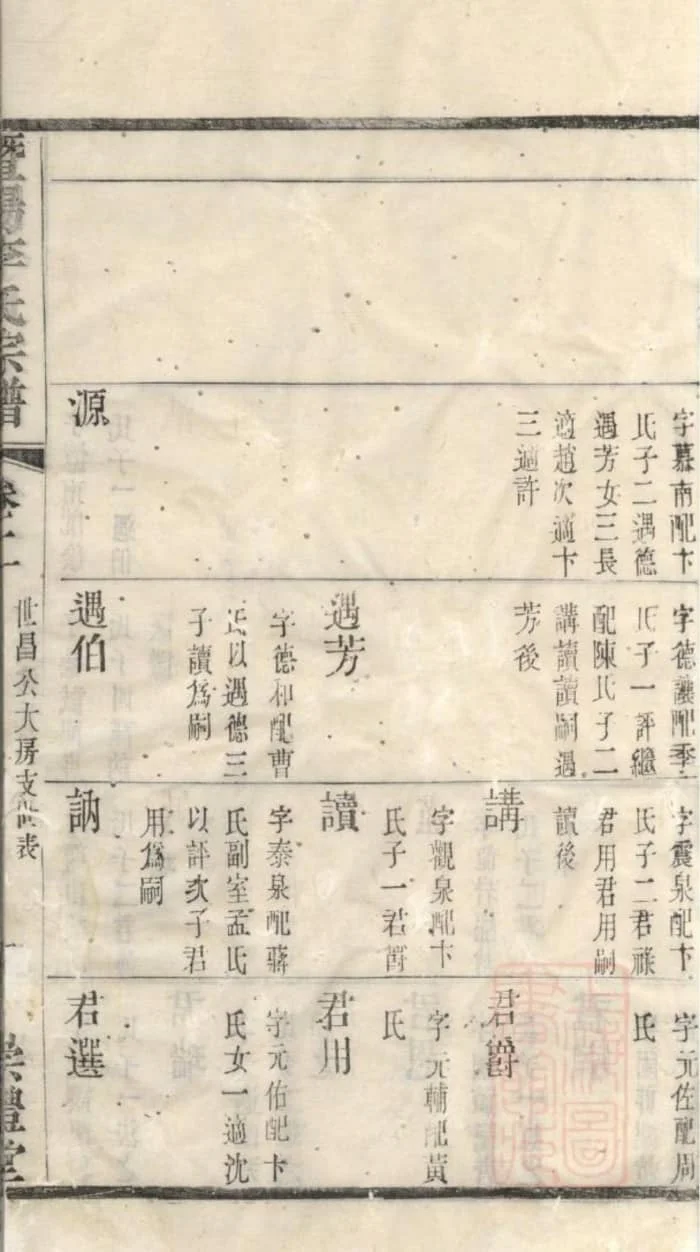 字慕南配卞
氏子二遇德
遇芳女三長
適趙次適卞
三適許
源
字德讓配季
氏子一評繼
配陳氏子二
講讀讀嗣遇
芳後
遇芳
字德和配曹
氏以遇德三
子讀為嗣
遇伯
字震泉配卞
氏子二君祿
君用君用嗣
讀後
講
字觀泉配卞
氏子一君爵
讀
字泰泉配蔣
氏副室孟氏
以評次子君
用為嗣
訥
字元佐配周
氏
君爵
字元輔配黃
氏
君用
字元佑配卞
氏女一適沈
君選
暨陽李氏宗譜
世昌公大房支世表
崇禮堂